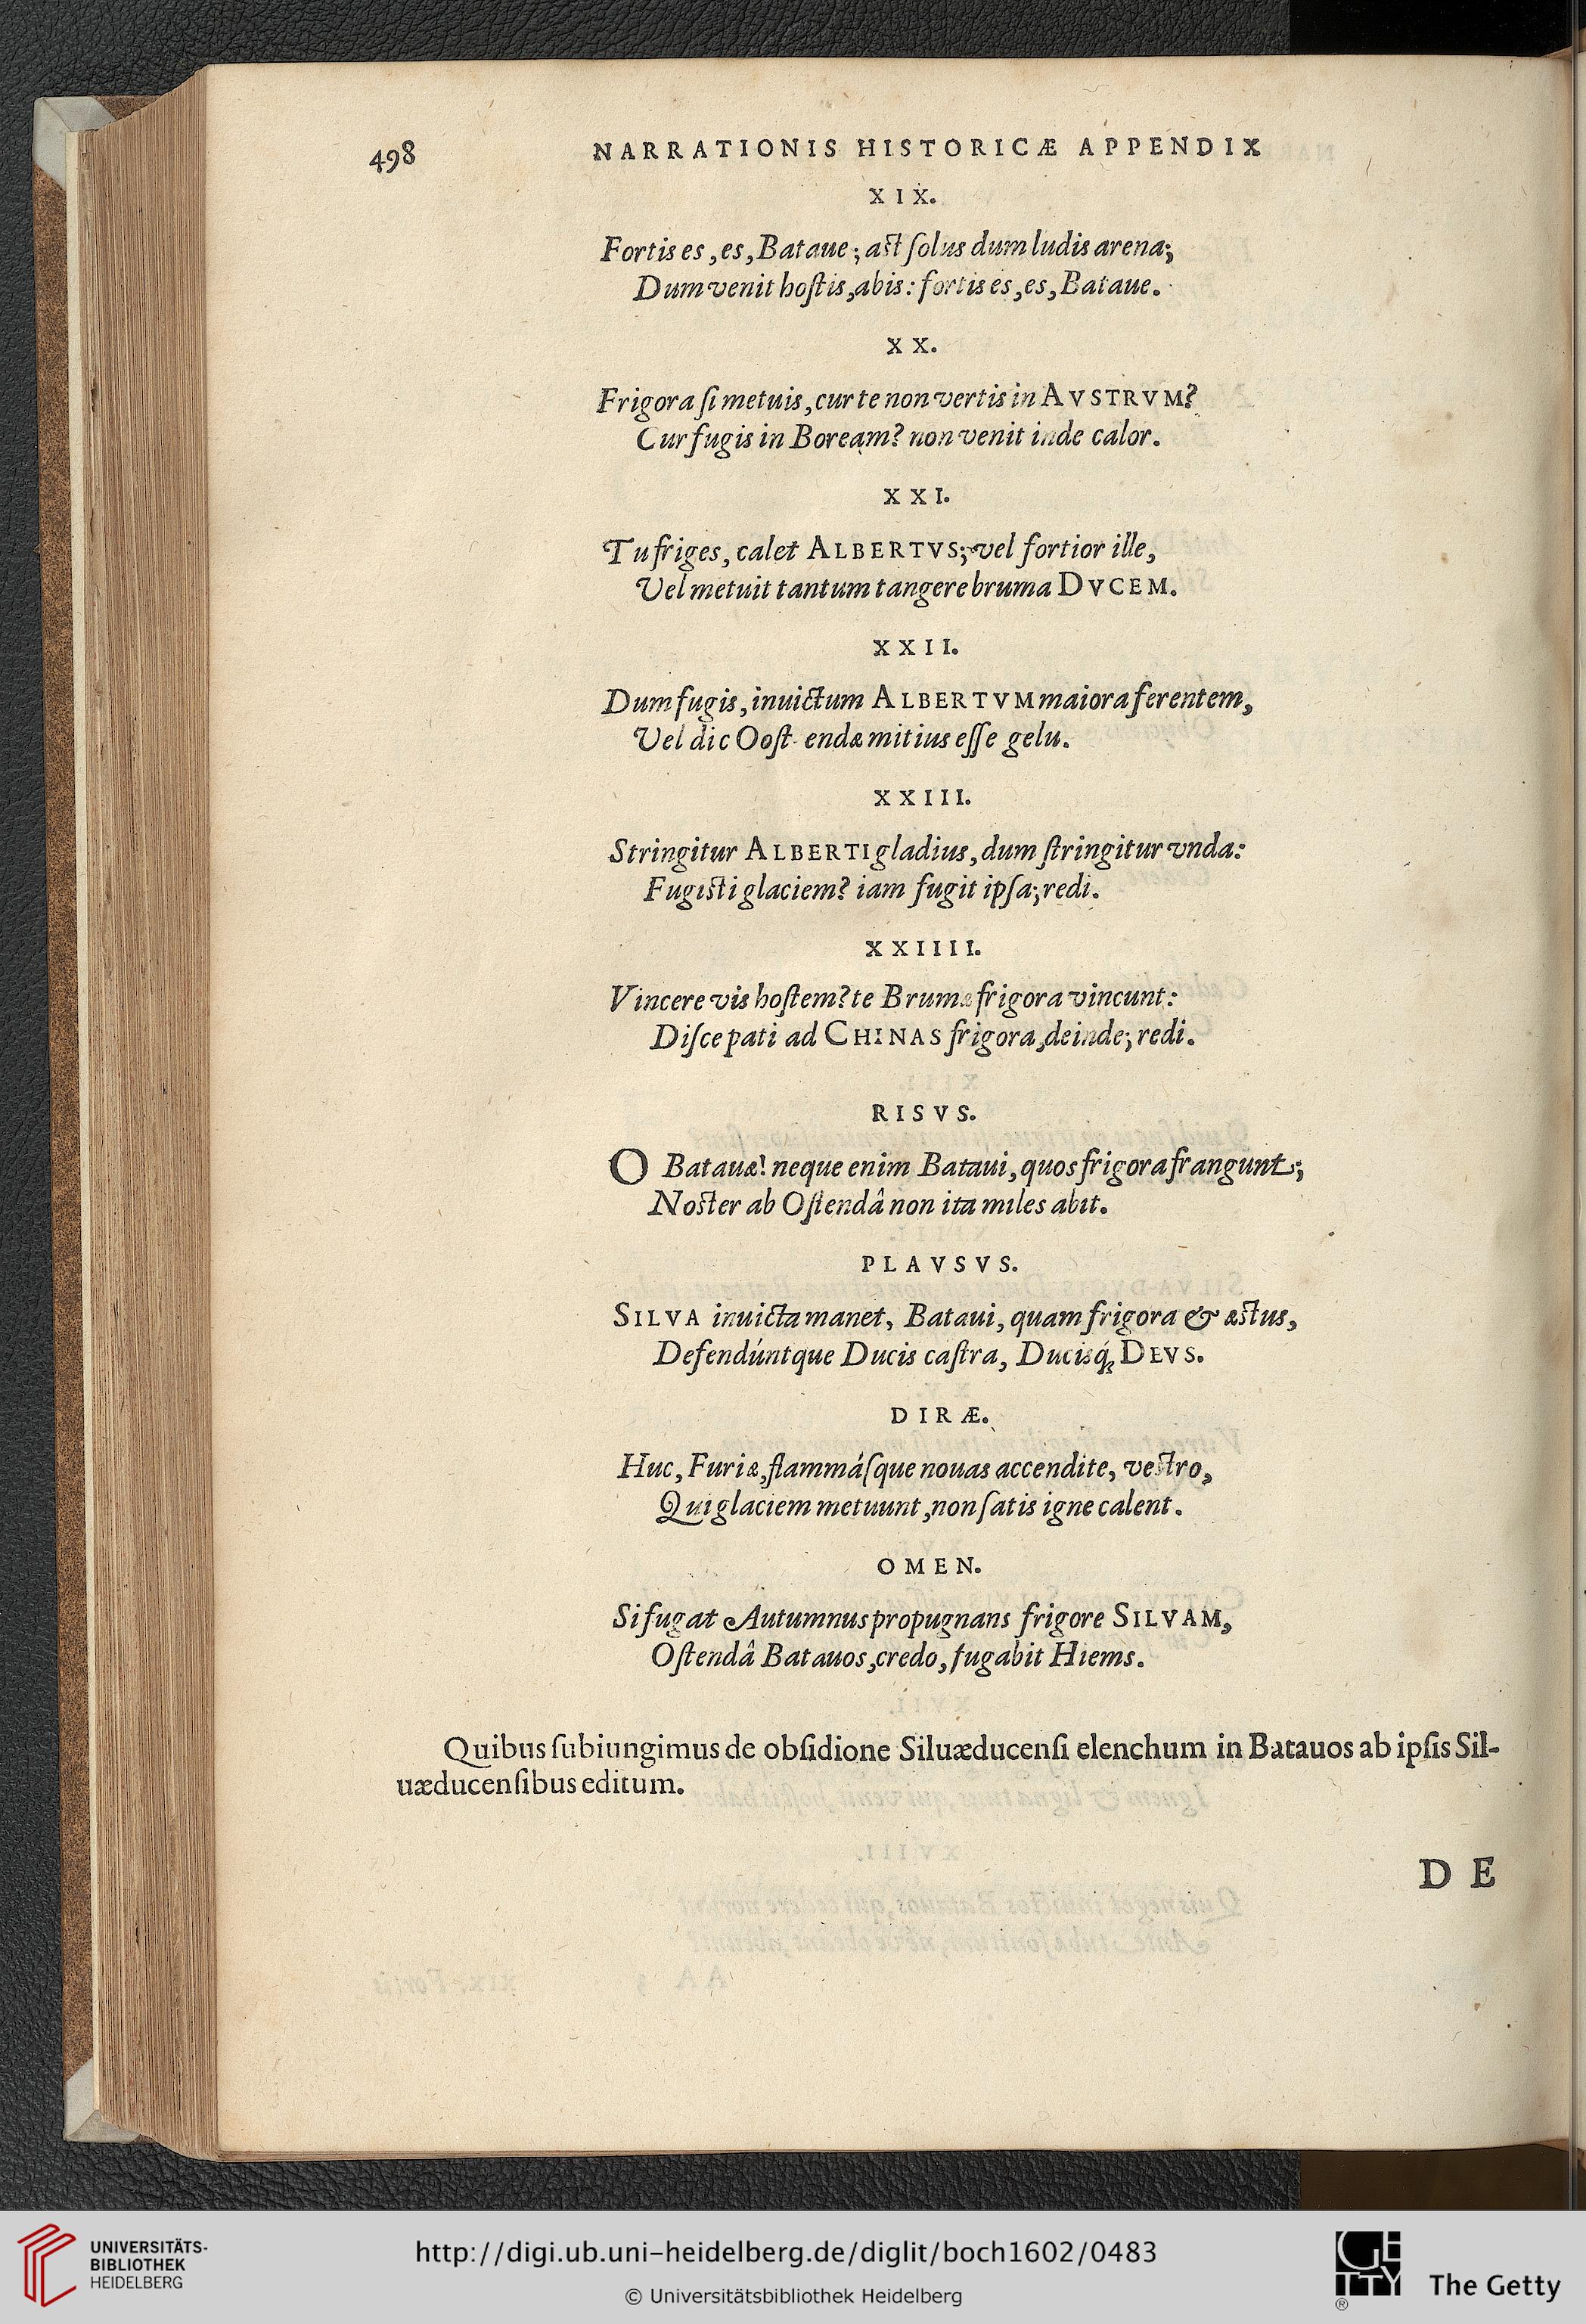 498 NARRATIONIS HISTORICÆ APPENDIX
XIX.
Fortis es, es, Bataue; ast ſolus dum ludis arena;
Dum venit hoſtis, abis: fortis es, es, Bataue.
XX.
Frigora ſi metuis, cur te non vertis in AVSTRVM?
Cur fugis in Boream? non venit inde calor.
XXI.
Tu friges, calet ALBERTVS; vel fortior ille,
Vel metuit tantum tangere bruma DVCEM.
XXII.
Dum fugis, inuictum ALBERTVM maiora ferentem,
Vel dic Ooſt-endæ mitius eſſe gelu.
XXIII.
Stringitur ALBERTI gladius, dum ſtringitur vnda:
Fugisti glaciem? iam fugit ipſa; redi.
XXIIII.
Vincere vis hoſtem? te Brumæ frigora vincunt:
Diſce pati ad CHINAS frigora, deinde; redi.
RISVS.
O Batauæ! neque enim Bataui, quos frigora frangunt;
Noster ab Oſtendâ non ita miles abit.
PLAVSVS.
SILVA inuicta manet, Bataui, quam frigora & æstus,
Defendúntque Ducis caſtra, Ducisq́; DEVS.
DIRÆ.
Huc, Furiæ, flammáſque nouas accendite, vestro,
Qui glaciem metuunt, non ſatis igne calent.
OMEN.
Si fugat Autumnus propugnans frigore SILVAM,
Oſtendâ Batauos, credo, fugabit Hiems.
Quibus ſubiungimus de obſidione Siluæducenſi elenchum in Batauos ab ipſis Sil-
uæducenſibus editum.
DE
UNIVERSITÄTS-
BIBLIOTHEK
HEIDELBERG
http://digi.ub.uni-heidelberg.de/diglit/boch1602/0483
© Universitätsbibliothek Heidelberg
GETTY
®
The Getty